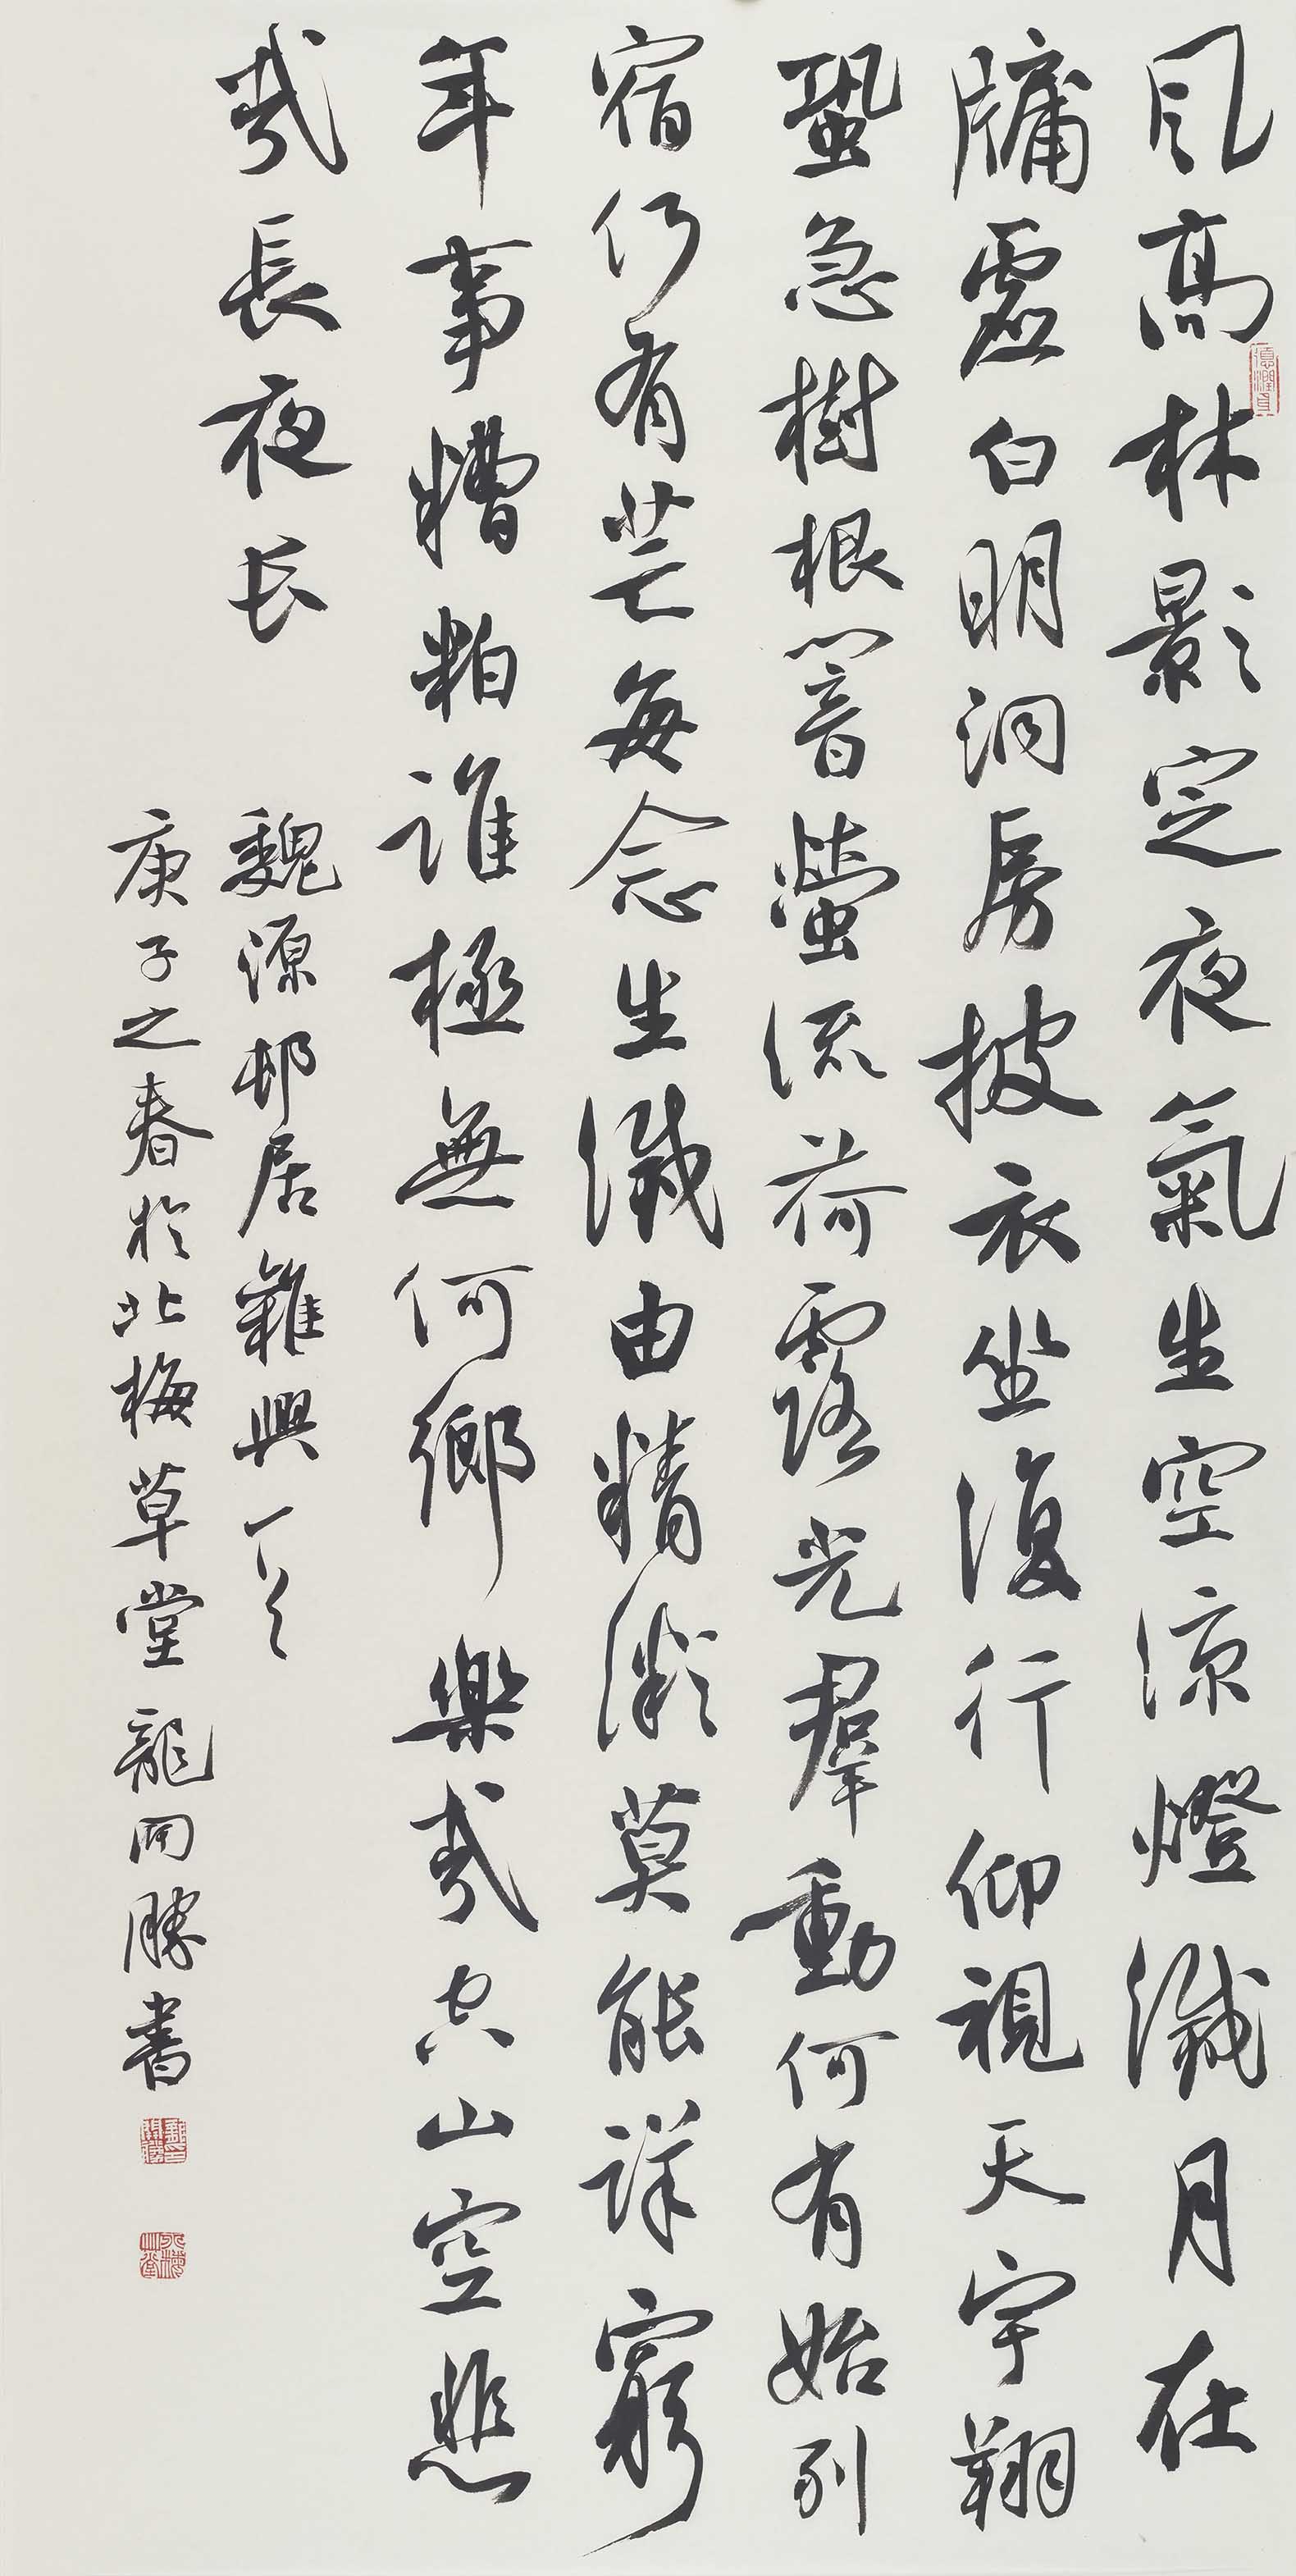 風高林影定夜氣生空涼燈滅月在
牖虛白明洞房披衣坐復行仰視天宇翔
蛩急樹根響螢流荷露光羣動何有始列
宿仍有芒每念生滅由精凝莫能詳窮
年事糟粕誰極無何鄉樂哉空山空悲
哉長夜长
魏源邨居雜興一首
庚子之春於北梅草堂龍開勝書
德潤身